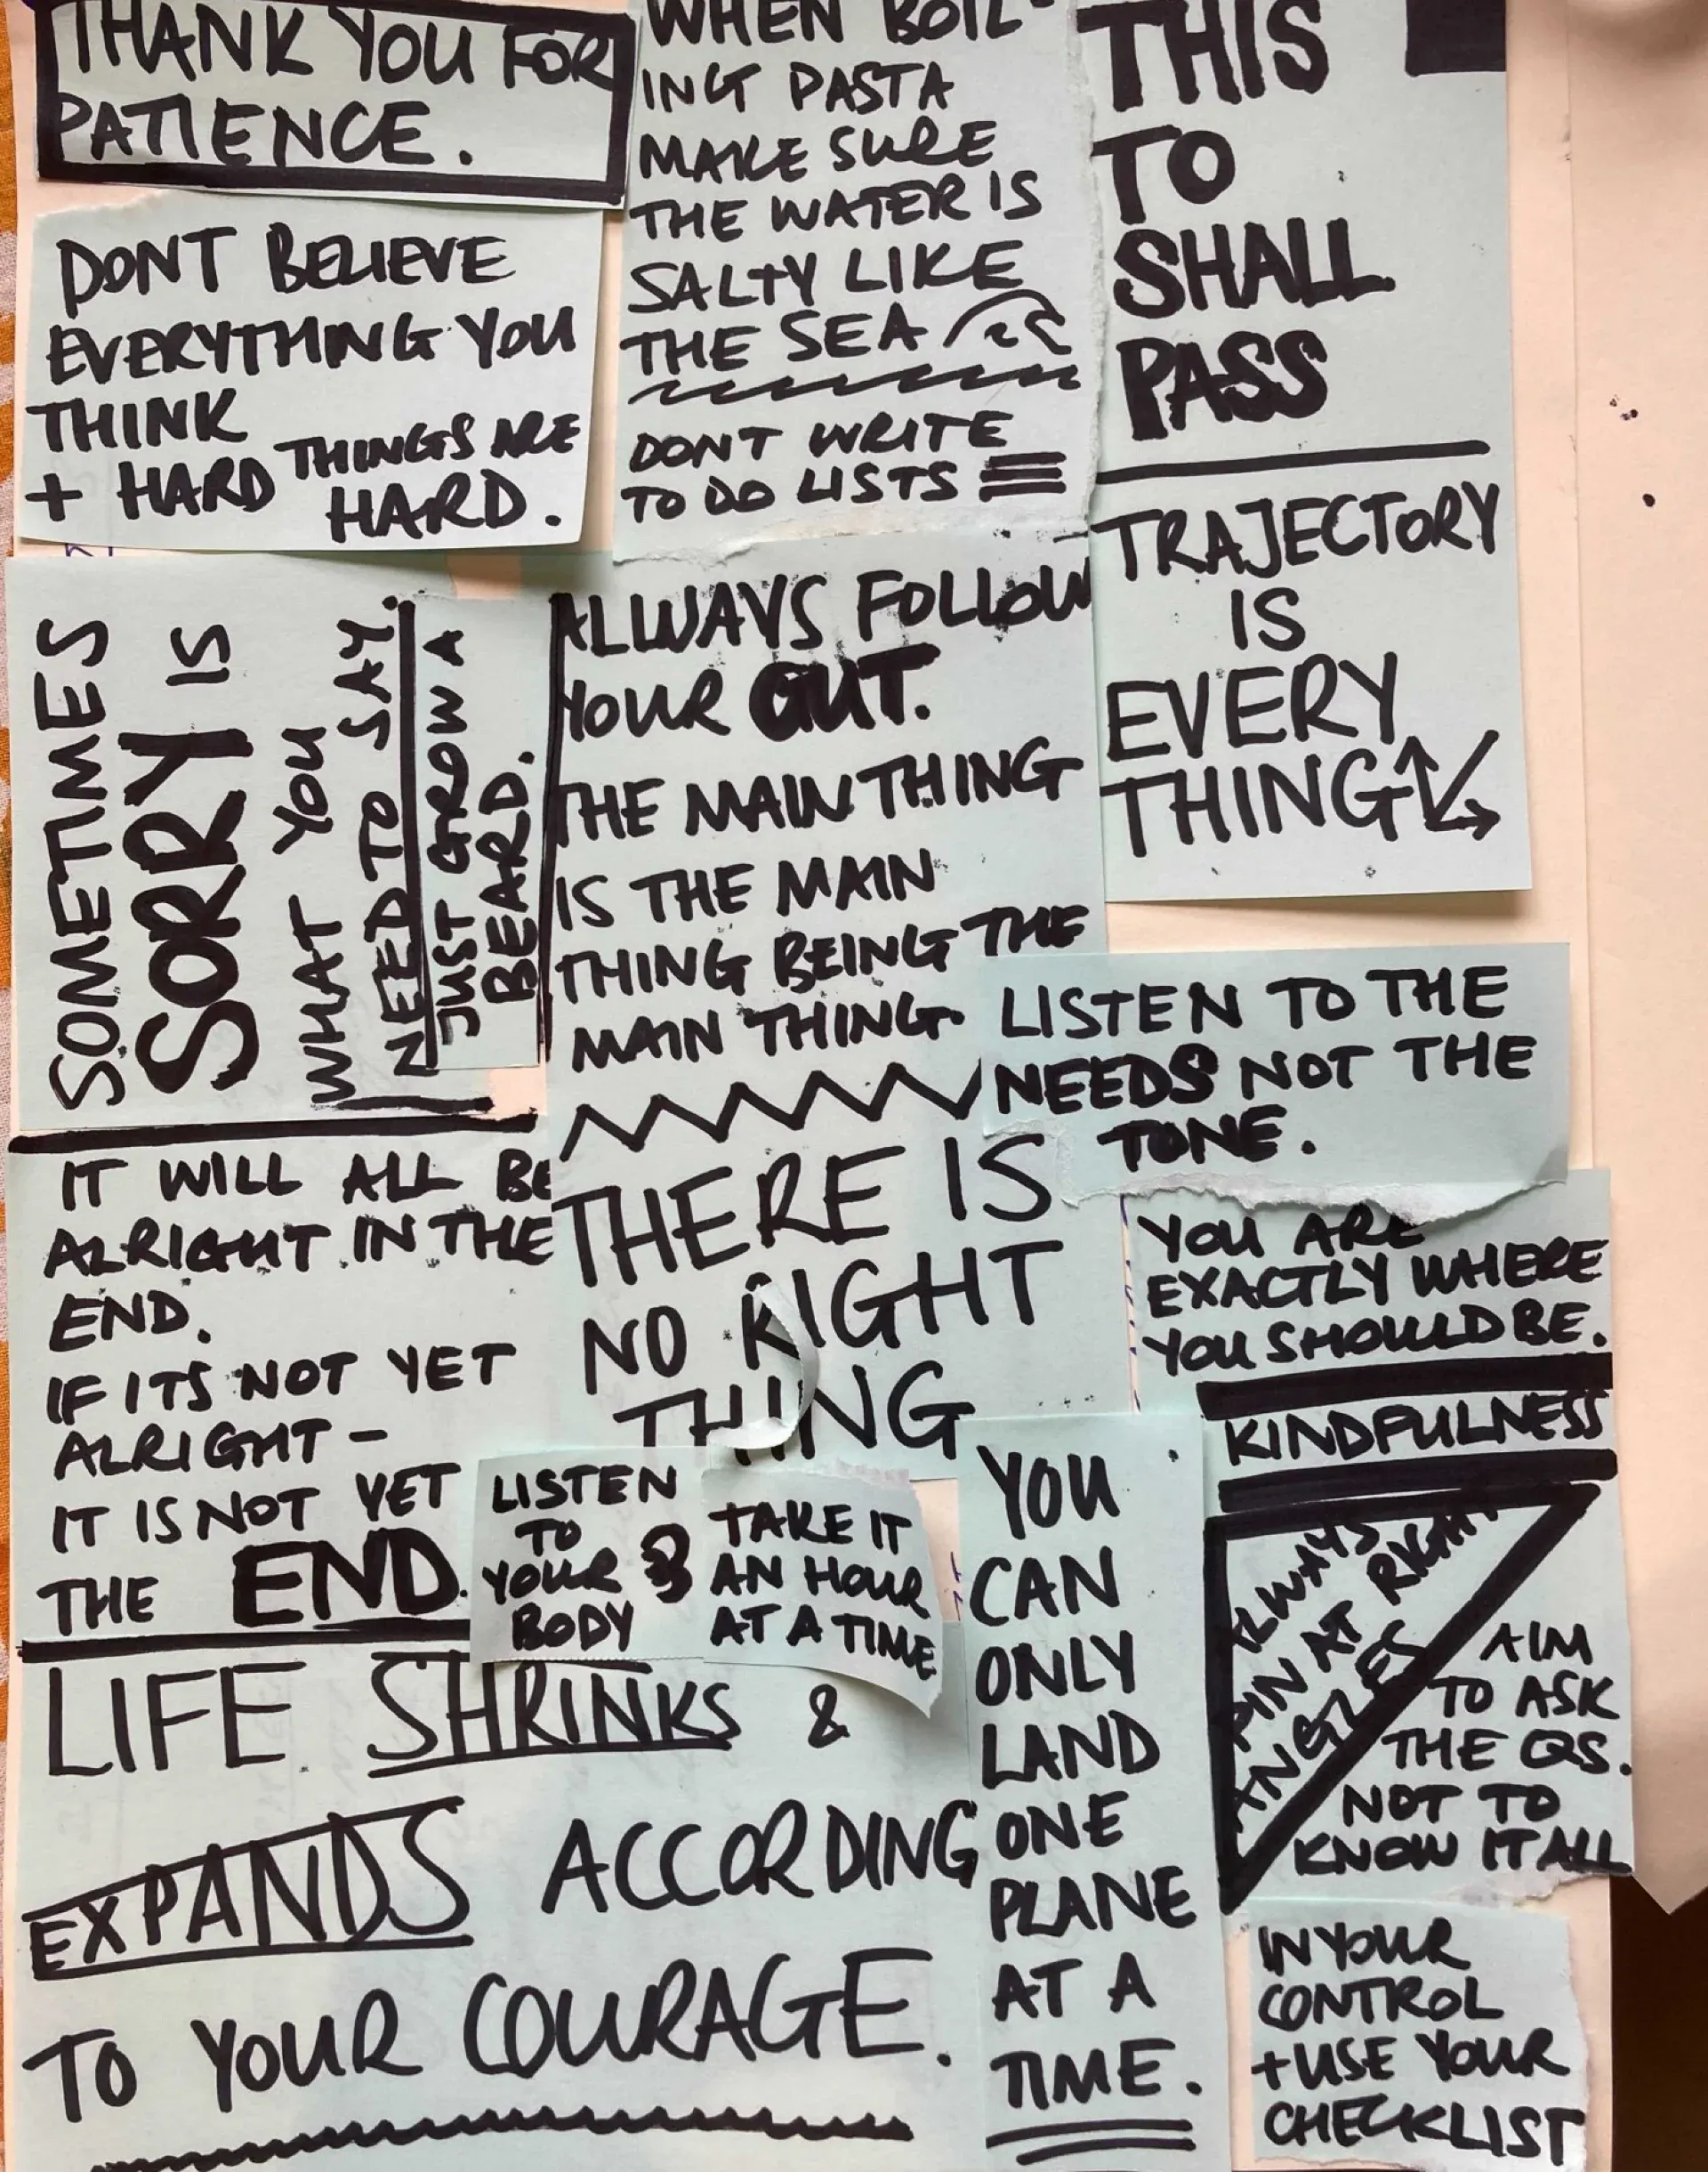 THANK YOU FOR
PATIENCE.
DONT BELIEVE
EVERYTHING YOU
THINK
+ HARD THINGS ARE
HARD.
WHEN BOIL-
ING PASTA
MAKE SURE
THE WATER IS
SALTY LIKE
THE SEA
DONT WRITE
TO DO LISTS
THIS
TO
SHALL
PASS
TRAJECTORY
IS
EVERY
THING
SOMETIMES
SORRY IS
WHAT YOU
NEED TO SAY.
JUST GROW A
BEARD.
ALWAYS FOLLOW
YOUR GUT.
THE MAIN THING
IS THE MAIN
THING BEING THE
MAIN THING.
LISTEN TO THE
NEEDS NOT THE
TONE.
IT WILL ALL BE
ALRIGHT IN THE
END.
IF ITS NOT YET
ALRIGHT -
IT IS NOT YET
THE END.
THERE IS
NO RIGHT
THING
YOU ARE
EXACTLY WHERE
YOU SHOULD BE.
KINDFULNESS
LISTEN
TO
YOUR
BODY
TAKE IT
AN HOUR
AT A TIME
YOU
CAN
ONLY
LAND
ONE
PLANE
AT A
TIME.
ALWAYS
PIN AT RIGHT
ANGLES
AIM
TO ASK
THE QS.
NOT TO
KNOW IT ALL
LIFE SHRINKS &
EXPANDS ACCORDING
TO YOUR COURAGE.
IN YOUR
CONTROL
+ USE YOUR
CHECKLIST